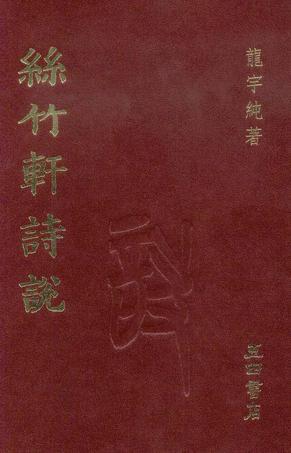 龍宇純著
絲竹軒詩說
五四書店